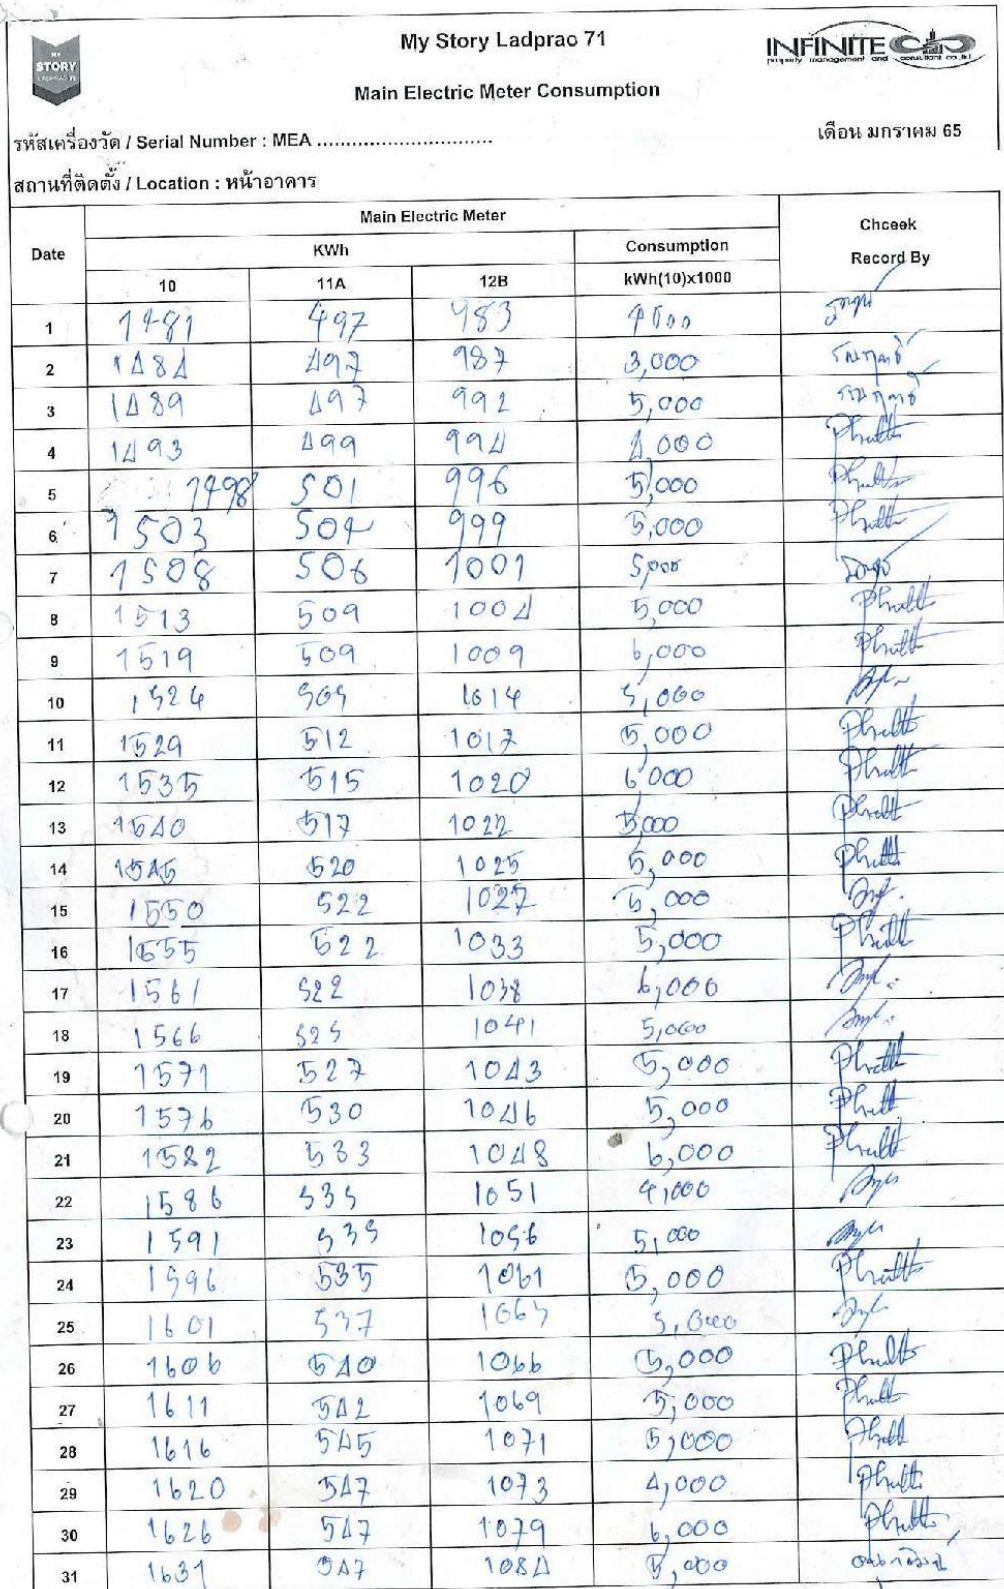 MY
STORY
LADPRAO 71
My Story Ladprao 71
INFINITE
property management and consultant co.,ltd
Main Electric Meter Consumption
รหัสเครื่องวัด / Serial Number : MEA ...............................
เดือน มกราคม 65
สถานที่ติดตั้ง / Location : หน้าอาคาร
Date Main Electric Meter Chceek
KWh Consumption Record By
10 11A 12B kWh(10)x1000
1 1481 497 983
2 1484 497 987 3,000
3 1489 497 992 5,000
4 1493 499 994 4,000
5 1498 501 996 5,000
6 1503 504 999 5,000
7 1508 506 1001 5,000
8 1513 509 1004 5,000
9 1519 509 1009 6,000
10 1524 509 1014 5,000
11 1529 512 1017 5,000
12 1535 515 1020 6,000
13 1540 517 1022 5,000
14 1545 520 1025 5,000
15 1550 522 1027 5,000
16 1555 522 1033 5,000
17 1561 522 1038 6,000
18 1566 525 1041 5,000
19 1571 527 1043 5,000
20 1576 530 1046 5,000
21 1582 533 1048 6,000
22 1586 535 1051 4,000
23 1591 535 1056 5,000
24 1596 535 1061 5,000
25 1601 537 1063 5,000
26 1606 540 1066 5,000
27 1611 542 1069 5,000
28 1616 545 1071 5,000
29 1620 547 1073 4,000
30 1626 547 1079 6,000
31 1631 547 1084 5,000